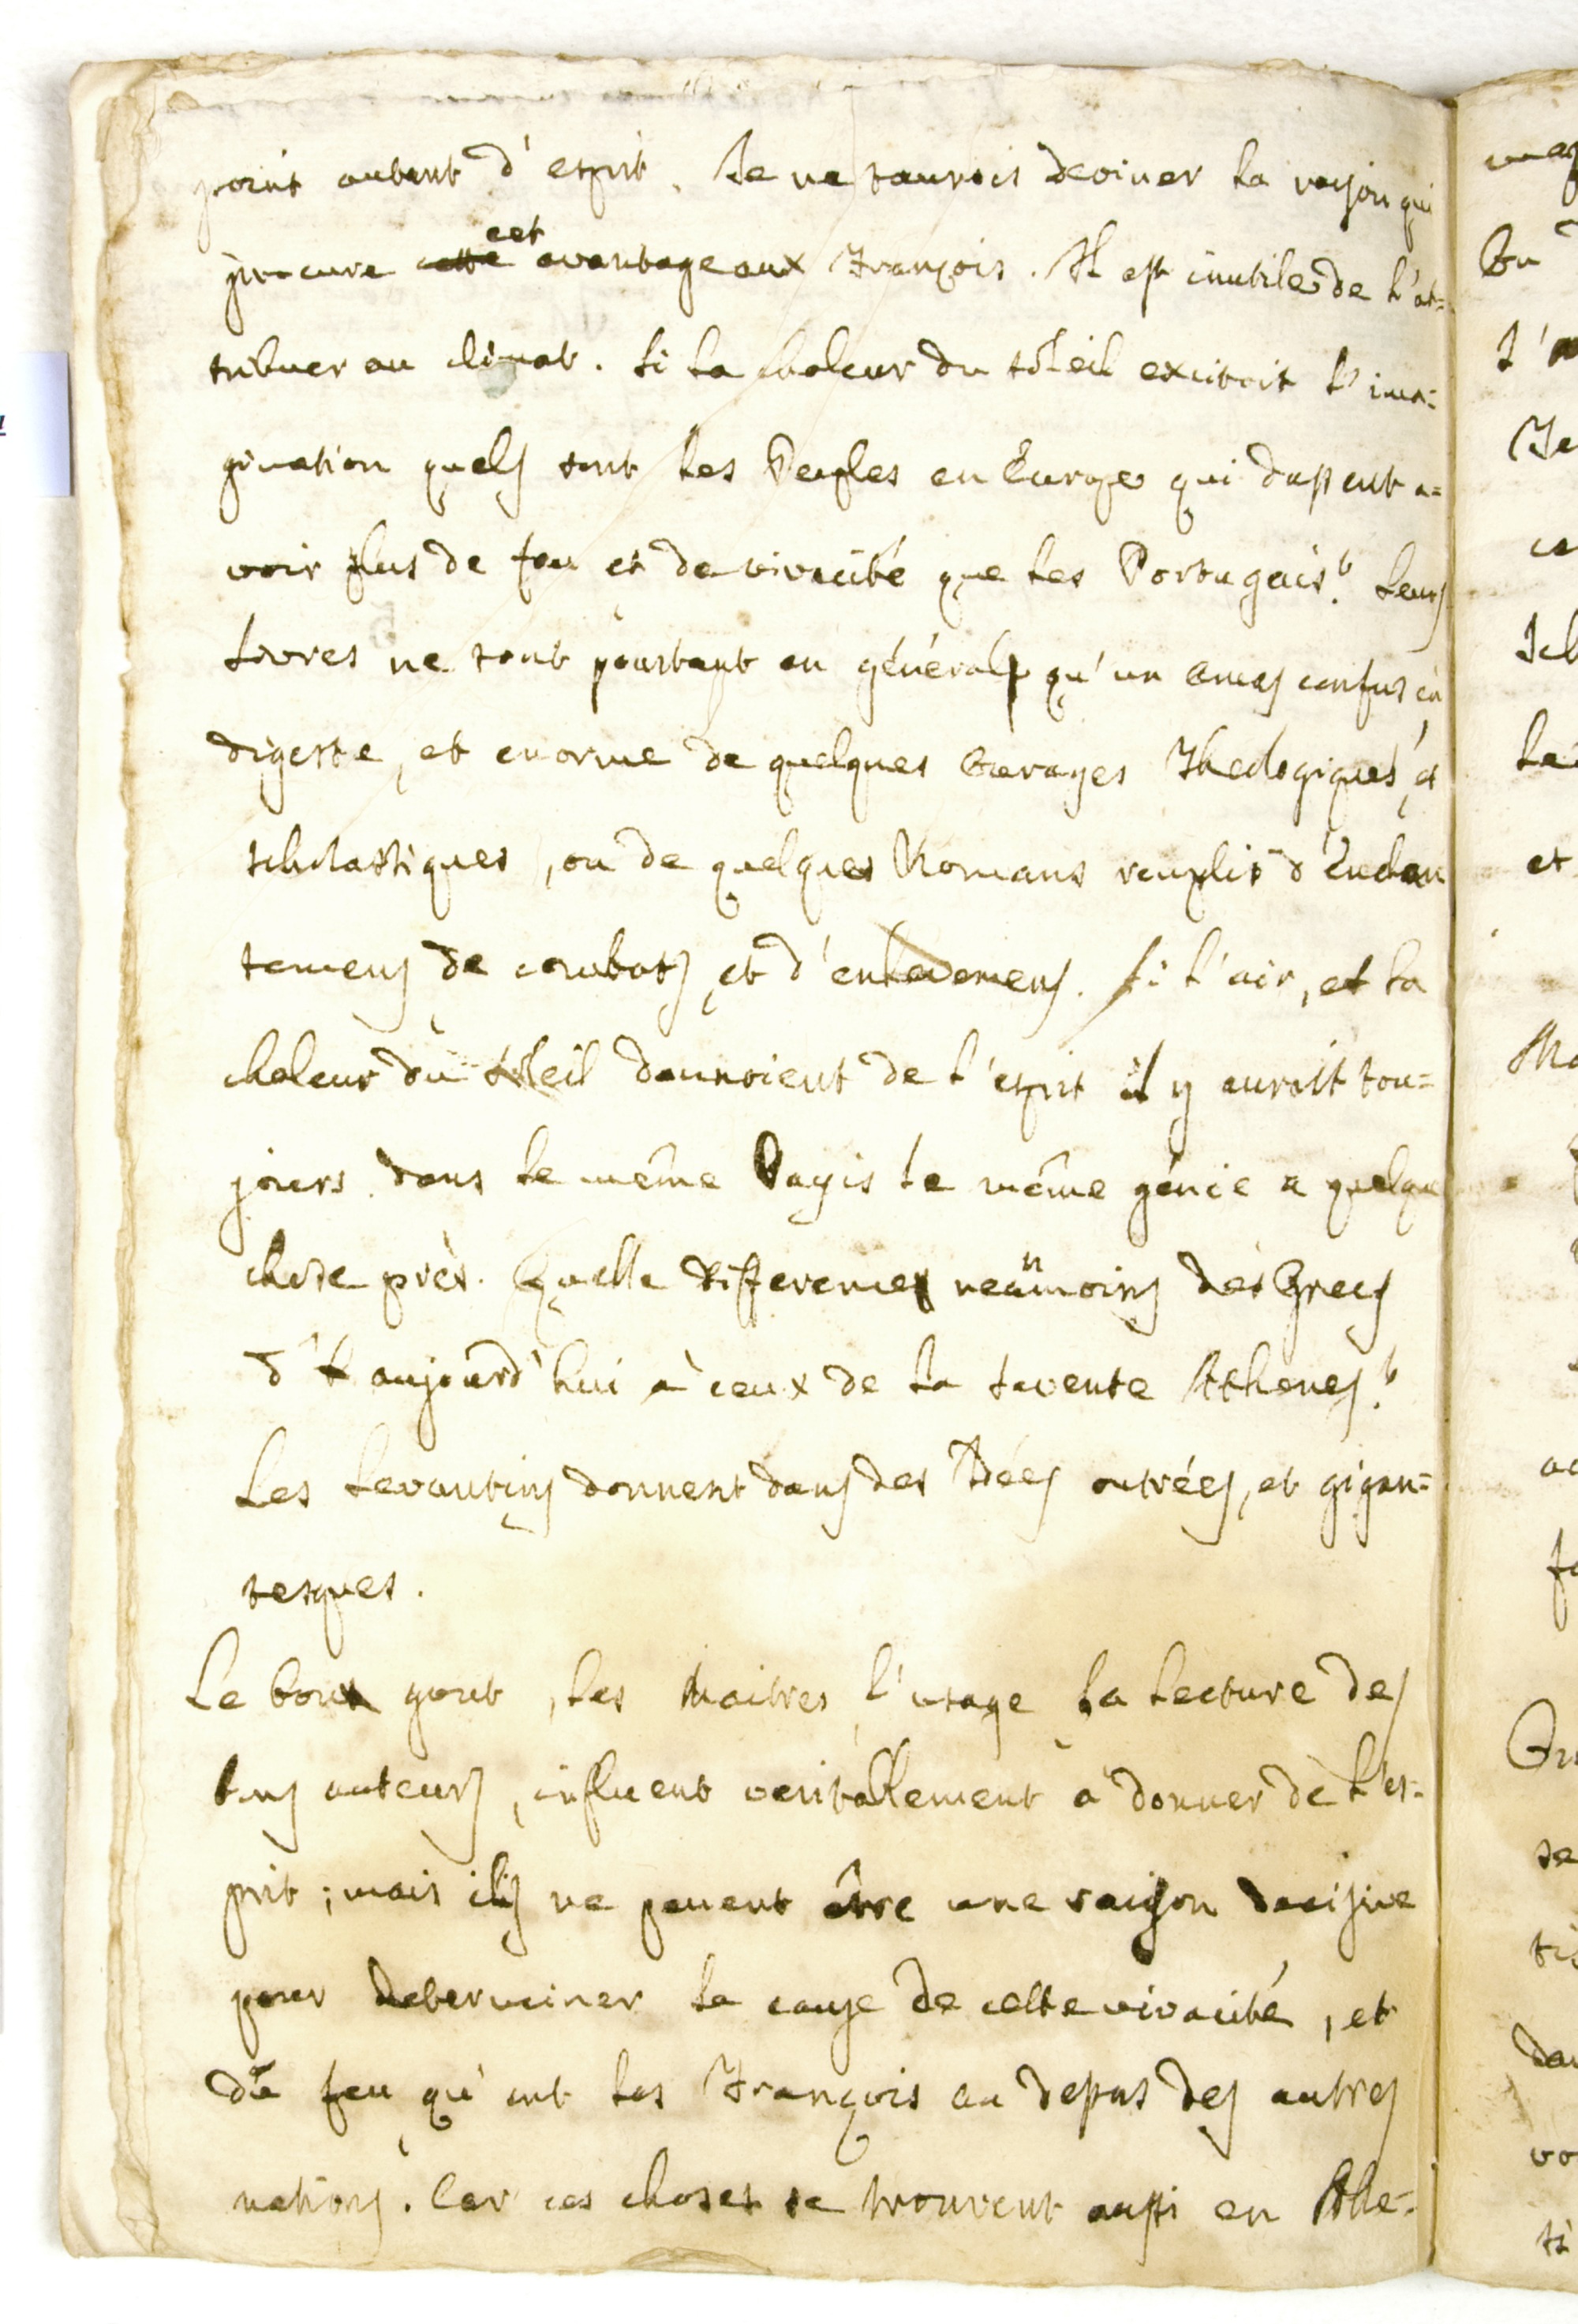 point autant d'esprit. Je ne saurois deviner la raison qui
procure cette cet avantage aux François. Il est inutile de l'at=
tribuer au climat. Si la chaleur du soleil excitoit l'ima=
gination quels sont les Peuples en Europe qui dussent a=
voir plus de feu et de vivacité que les Portugais? Leurs
Livres ne sont pourtant en général qu'un amas confus in
digeste, et enorme de quelques Ouvrages Theologiques, et
scholastiques, ou de quelques Romans remplis d'Enchan
temens de combats, et d'enlevemens. Si l'air, et la
chaleur du soleil donnoient de l'esprit il y auroit tou=
jours dans le même Payis le même génie a quelque
chose près. Quelle difference neanmoins des Grecs
d'aujourd'hui à ceux de la savente Athenes?
Les Levantins donnent dans des Idées outrées, et gigan=
tesques.
Le bon gout, les Maitres, l'usage, la Lecture des
bons auteurs, influent veritablement a donner de l'es=
prit; mais ils ne peuent être une raison decisive
pour determiner la cause de cette vivacité, et
du feu qu'ont les François au depus des autres
nations. Car ces choses se trouvent aussi en Alle=
Ou
et